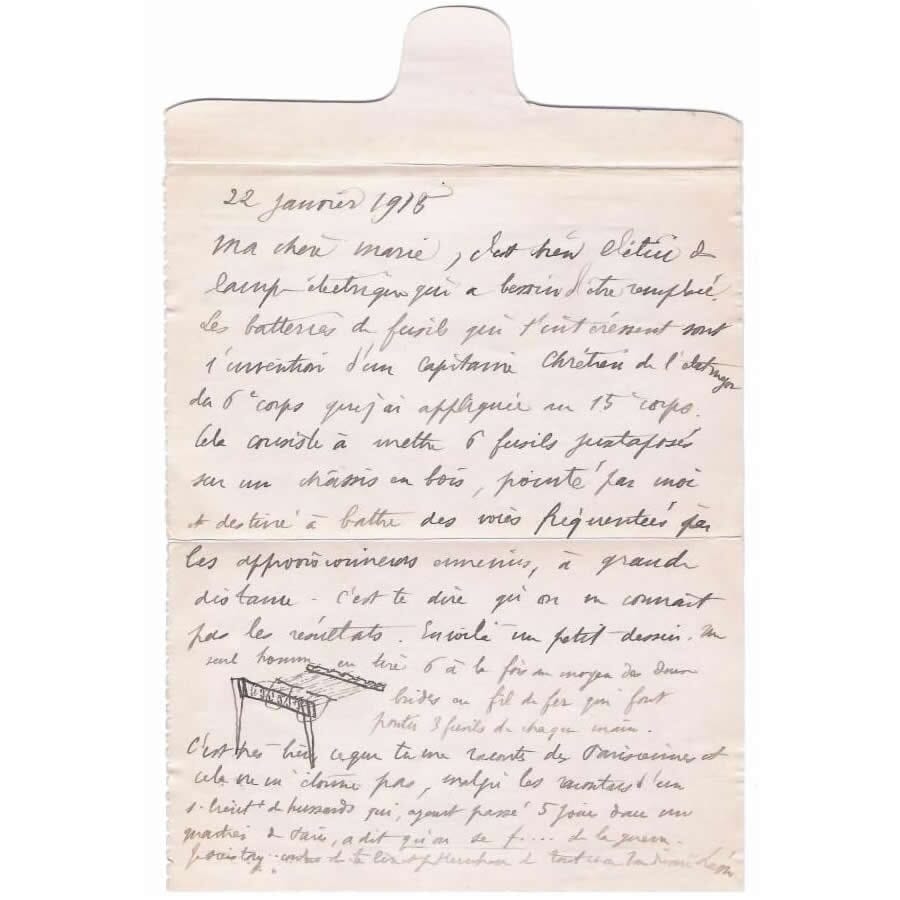 22 janvier 1915
Ma chère Marie, c'est bien l'étui de
lampe électrique qui a besoin d'être remplacé.
Les batteries de fusils qui t'intéressent sont
l'invention d'un capitaine Chrétien de l'état major
du 6e corps que j'ai appliquée au 15e corps.
Cela consiste à mettre 6 fusils juxtaposés
sur un châssis en bois, pointé par moi
et destiné à battre des voies fréquentées par
les approvisionneurs ennemis, à grande
distance - C'est te dire qu'on en connait
pas les résultats. En voilà un petit dessin. Un
seul homme en tire 6 à la fois au moyen de deux
brides en fil de fer qui font
partir 3 fusils de chaque main.
C'est très bien ce que tu me racontes des Parisiennes et
cela ne m'étonne pas, malgré les racontars d'un
s. lieutt de hussards qui, ayant passé 5 jours dans un
quartier de Paris, a dit qu'on se f.... de la guerre.
de tout